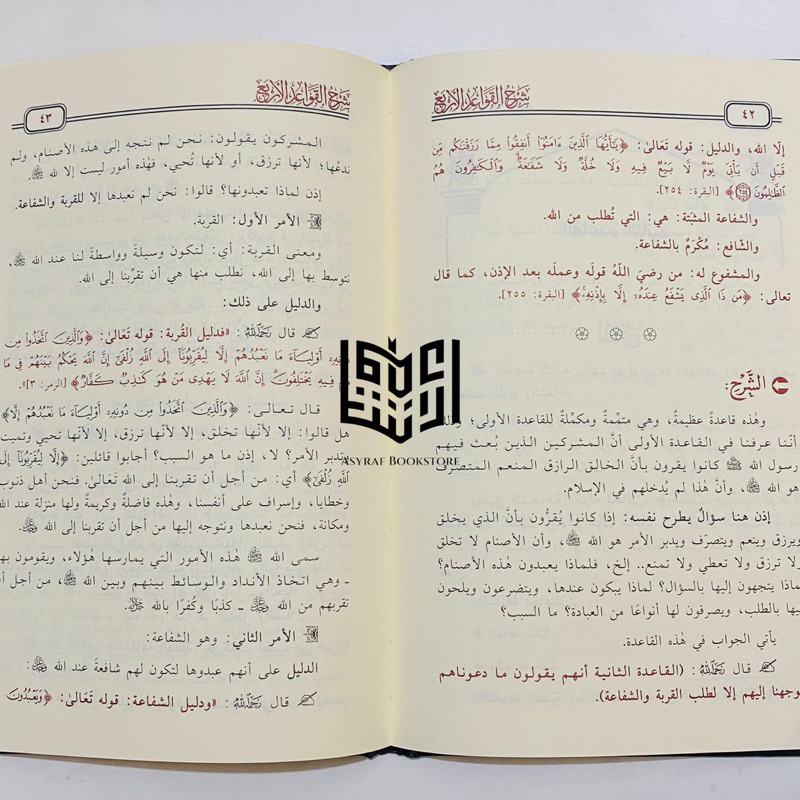 شرح القواعد الأربع
٤٢
إلَّا الله، والدليل: قوله تَعَالىٰ: ﴿يَٰٓأَيُّهَا ٱلَّذِينَ ءَامَنُوٓا۟ أَنفِقُوا۟ مِمَّا رَزَقْنَٰكُم مِّن
قَبْلِ أَن يَأْتِىَ يَوْمٌ لَّا بَيْعٌ فِيهِ وَلَا خُلَّةٌ وَلَا شَفَٰعَةٌ وَٱلْكَٰفِرُونَ هُمُ
ٱلظَّٰلِمُونَ ﴾ [البقرة: ٢٥٤].
والشفاعة المثبَتة: هي: التي تُطلب من الله.
والشَّافع: مُكْرَمٌ بالشفاعة.
والمشفوع له: من رضيَ اللَّهُ قولَه وعملَه بعد الإذن، كما قال
تعالى: ﴿مَن ذَا ٱلَّذِى يَشْفَعُ عِندَهُۥٓ إِلَّا بِإِذْنِهِۦ﴾ [البقرة: ٢٥٥].
الشَّرْحُ:
وهٰذه قاعدةٌ عظيمةٌ، وهي متمِّمةٌ ومكمِّلةٌ للقاعدة الأولى؛ وذلك
أننا عرفنا في القاعدة الأولى أنَّ المشركين الذين بُعث فيهم
رسول الله ﷺ كانوا يقرون بأنَّ الخالق الرازق المنعم المتصرف
هو الله ﷻ، وأنَّ هٰذا لم يُدخلهم في الإسلام.
إذن هنا سؤالٌ يطرح نفسه: إذا كانوا يُقرُّون بأنَّ الذي يخلق
ويرزق وينعم ويتصرَّف ويدبر الأمر هو الله ﷻ، وأن الأصنام لا تخلق
ولا ترزق ولا تعطي ولا تمنع.. إلخ، فلماذا يعبدون هٰذه الأصنام؟
لماذا يتجهون إليها بالسؤال؟ لماذا يبكون عندها، ويتضرعون ويلحون
إليها بالطلب، ويصرفون لها أنواعًا من العبادة؟ ما السبب؟
يأتي الجواب في هٰذه القاعدة.
قال رَحِمَهُ اللَّهُ: (القاعدة الثانية أنهم يقولون ما دعوناهم
وتوجهنا إليهم إلا لطلب القربة والشفاعة).
شرح القواعد الأربع
٤٣
المشركون يقولون: نحن لم نتجه إلى هذه الأصنام، ولم
ندعُها؛ لأنها ترزق، أو لأنها تُحيي، فهٰذه أمور ليست إلا لله ﷻ.
إذن لماذا تعبدونها؟ قالوا: نحن لم نعبدها إلا للقربة والشفاعة.
الأمر الأول: القربة.
ومعنى القربة: أي: لتكون وسيلةً وواسطة لنا عند الله ﷻ،
نتوسط بها إلى الله، نطلب منها هي أن تقرِّبنا إلى الله.
والدليل على ذلك:
قال رَحِمَهُ اللَّهُ: «فدليل القُربة: قوله تَعَالىٰ: ﴿وَٱلَّذِينَ ٱتَّخَذُوا۟ مِن
دُونِهِۦٓ أَوْلِيَآءَ مَا نَعْبُدُهُمْ إِلَّا لِيُقَرِّبُونَآ إِلَى ٱللَّهِ زُلْفَىٰٓ إِنَّ ٱللَّهَ يَحْكُمُ بَيْنَهُمْ فِى مَا
هُمْ فِيهِ يَخْتَلِفُونَ إِنَّ ٱللَّهَ لَا يَهْدِى مَنْ هُوَ كَٰذِبٌ كَفَّارٌ﴾ [الزمر: ٣]».
قال تعالى: ﴿وَٱلَّذِينَ ٱتَّخَذُوا۟ مِن دُونِهِۦٓ أَوْلِيَآءَ مَا نَعْبُدُهُمْ إِلَّا﴾
هل قالوا: إلا لأنها تخلق، إلا لأنها ترزق، إلا لأنها تحيي وتميت
وتدبر الأمر؟ لا، إذن ما هو السبب؟ أجابوا قائلين: ﴿إِلَّا لِيُقَرِّبُونَآ إِلَى
ٱللَّهِ زُلْفَىٰٓ﴾ أي: من أجل أن تقربنا إلى الله تَعَالىٰ. فنحن أهل ذنوب
وخطايا، وإسراف على أنفسنا، وهٰذه فاضلةٌ وكريمةٌ ولها منزلة عند الله
ومكانة، فنحن نعبدها ونتوجه إليها من أجل أن تقربنا إلى الله ﷻ.
سمى الله ﷻ هٰذه الأمور التي يمارسها هٰؤلاء، ويقومون بها
ـ وهي اتخاذ الأنداد والوسائط بينهم وبين الله ﷻ، من أجل أن
تقربهم من الله ﷻ ـ كذبًا وكُفرًا بالله ﷻ.
الأمر الثاني: وهو الشفاعة:
الدليل على أنهم عبدوها لتكون لهم شافعةً عند الله ﷻ:
قال رَحِمَهُ اللَّهُ: «ودليل الشفاعة: قوله تَعَالىٰ: ﴿وَيَعْبُدُونَ
ASYRAF BOOKSTORE